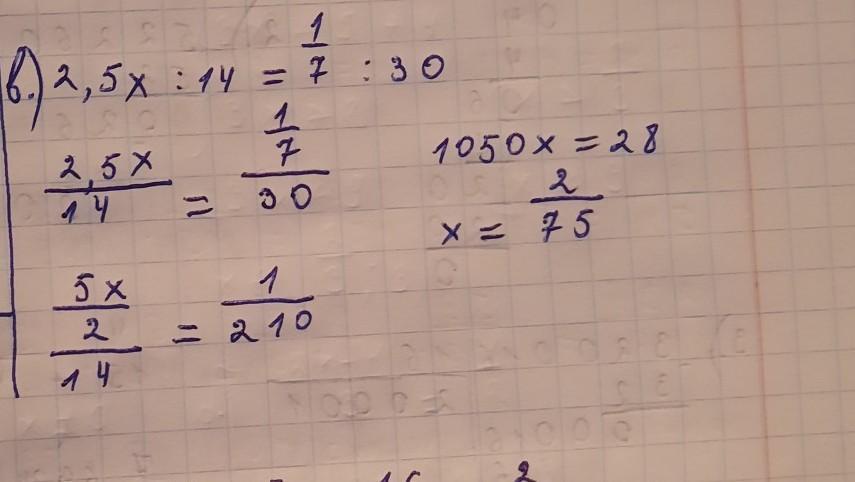 в.) 2,5x : 14 = 1/7 : 30
2,5x/14 = (1/7)/30
(5x/2)/14 = 1/210
1050x = 28
x = 2/75